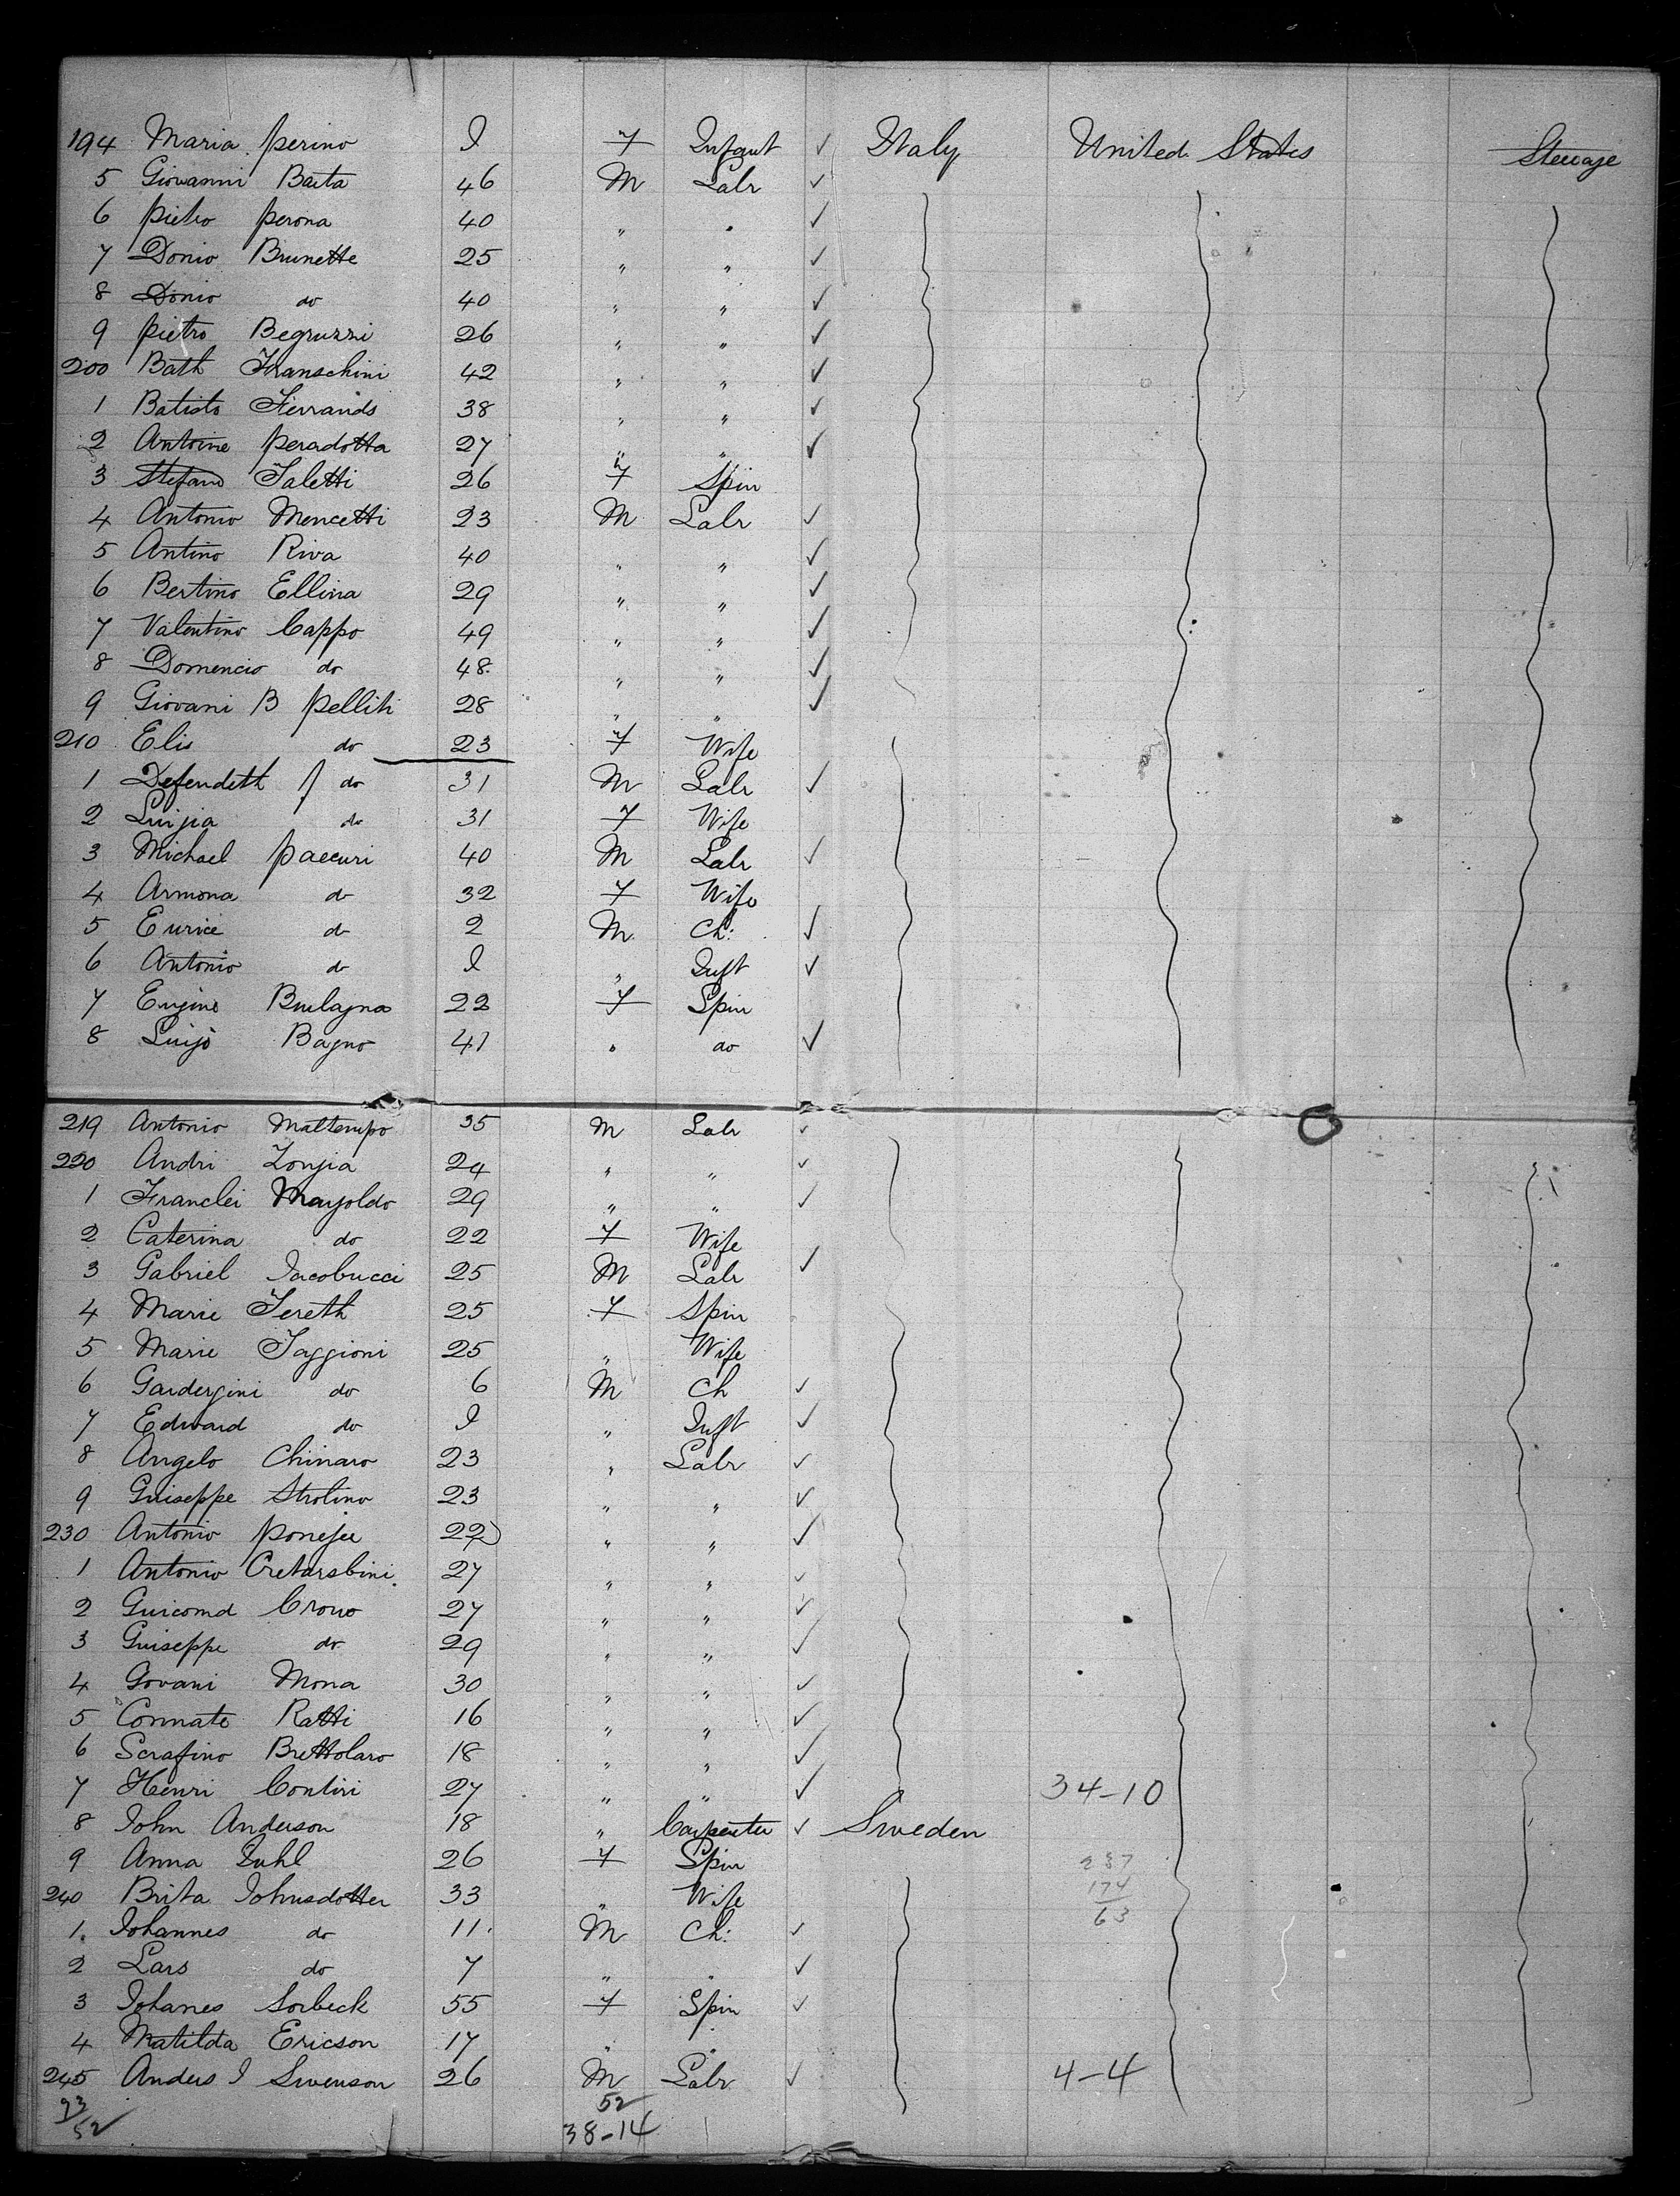 194 Maria Perino I F Infant ✓ Italy United States Steerage
5 Giovanni Barta 46 M Labr ✓
6 Pietro Perona 40 " " ✓
7 Donio Brunette 25 " " ✓
8 Donio do 40 " " ✓
9 Pietro Begruzzi 26 " " ✓
200 Bath Franschini 42 " " ✓
1 Batisto Ferrands 38 " " ✓
2 Antoine Peradotta 27 " " ✓
3 Stefano Taletti 26 F Spin
4 Antonio Mencetti 23 M Labr ✓
5 Antino Riva 40 " " ✓
6 Bertino Ellina 29 " " ✓
7 Valentino Cappo 49 " " ✓
8 Domencio do 48 " " ✓
9 Giovani B Pelliti 28 " " ✓
210 Elis do 23 F Wife
1 Defendett P do 31 M Labr ✓
2 Luijia do 31 F Wife
3 Michael Paecuri 40 M Labr ✓
4 Armona do 32 F Wife
5 Eurice do 2 M Ch: ✓
6 Antonio do I " Inft ✓
7 Eugine Burlagna 22 F Spin
8 Luijo Bagno 41 " do ✓
219 Antonio Maltempo 35 M Labr ✓
220 Andri Zonjia 24 " " ✓
1 Franclei Mayoldo 29 " " ✓
2 Caterina do 22 F Wife
3 Gabriel Iacobucci 25 M Labr ✓
4 Marie Tereth 25 F Spin
5 Marie Taggioni 25 " Wife
6 Gardergini do 6 M Ch ✓
7 Edward do I " Inft ✓
8 Angelo Chinaro 23 " Labr ✓
9 Guiseppe Strolino 23 " " ✓
230 Antonio 22 " " ✓
1 Antonio Cretarsbini 27 " " ✓
2 Guicomd Crovo 27 " " ✓
3 Guiseppe do 29 " " ✓
4 Govani Mona 30 " " ✓
5 Connate Ratti 16 " " ✓
6 Serafino Brettolaro 18 " " ✓
7 Henri Contini 27 " " ✓ 34-10
8 John Anderson 18 " Carpenter ✓ Sweden
9 Anna Juhl 26 F Spin 237
240 Brita Johnsdotter 33 " Wife 174
1. Johannes do 11 M Ch: ✓ 63
2 Lars do 7 " " ✓
3 Johanes Sorbeck 55 F Spin ✓
4 Matilda Ericson 17 " "
245 Anders J Swenson 26 M Labr ✓ 4-4
93 52
52 38-14